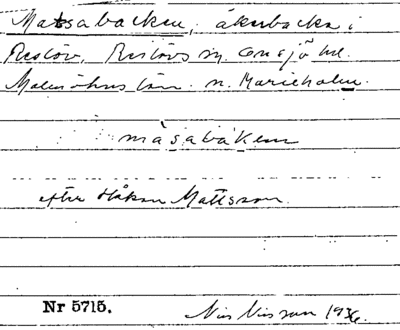 Matsabacken, åkerbacke i
Reslöv, Reslövs sn. Onsjö hd.
Malmöhus län. n. Marieholm.
màsabàken
efter Håkan Mattsson.
Nr 5715.
Nils Nilsson 1936.